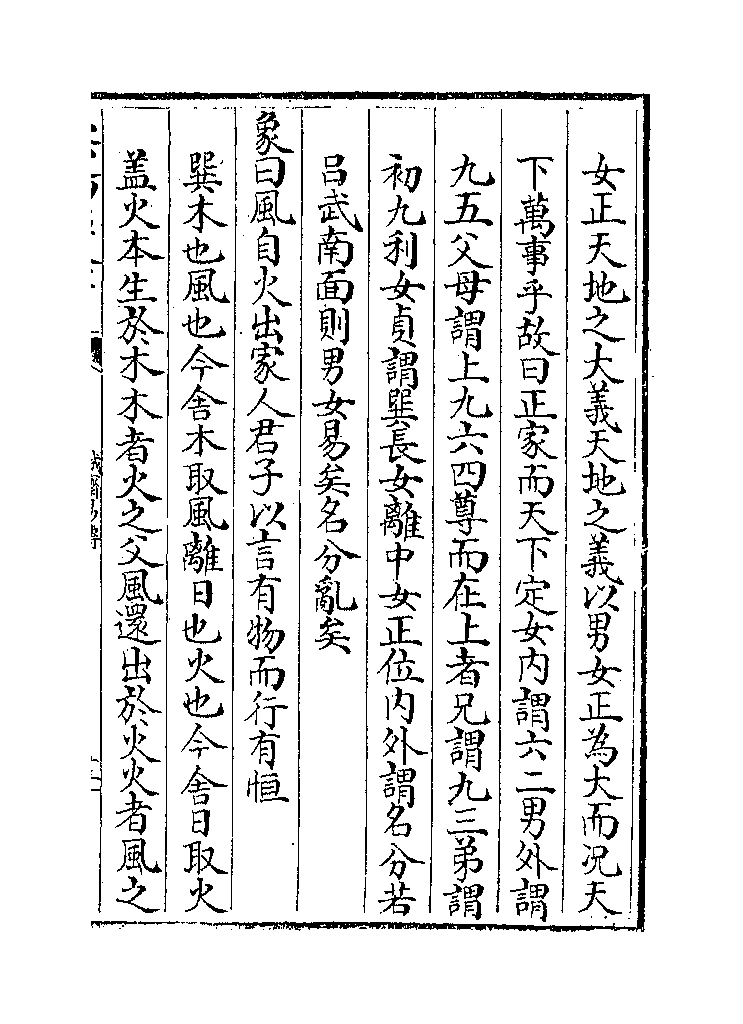 女正天地之大義天地之義以男女正為大而况天
下萬事乎故曰正家而天下定女内謂六二男外謂
九五父母謂上九六四尊而在上者兄謂九三弟謂
初九利女貞謂巽長女離中女正位内外謂名分若
吕武南面則男女易矣名分亂矣
象曰風自火出家人君子以言有物而行有恒
巽木也風也今舍木取風離日也火也今舍日取火
盖火本生於木木者火之父風還出於火火者風之
誠齋易傳